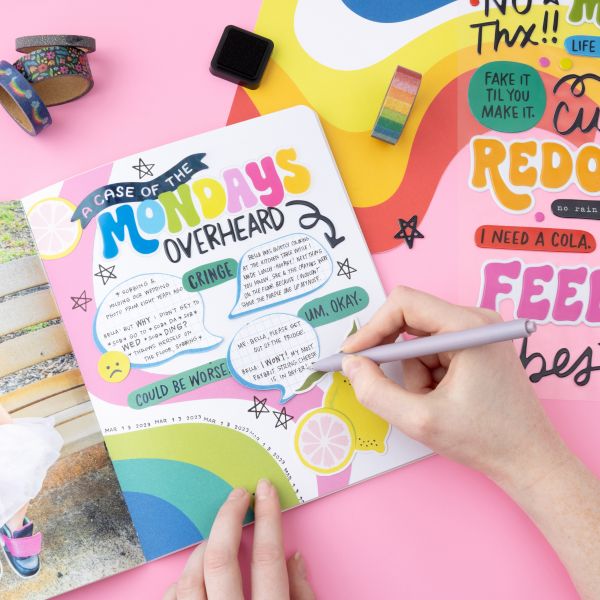 A CASE OF THE
MONDAYS
OVERHEARD
CRINGE
* ROBBING &
HOLDING OUR WEDDING
PHOTO FROM EIGHT YEARS AGO
BELLA: BUT WHY I DIDN'T GET TO
* SOB * GO TO * SOB * DA * SOB *
WED * SOB * DING?
* THROWS HERSELF ON
THE FLOOR, SOBBING *
BELLA WAS QUIETLY COLORING
AT THE KITCHEN TABLE WHILE I
MADE LUNCH.
YOU KNOW, SHE & THE CRAYONS WERE
ON THE FLOOR BECAUSE I WOULDN'T
UM, OKAY.
ME: BELLA, PLEASE GET
OUT OF THE FRIDGE.
BELLA: I WON'T! MY MOST
FAVORIT STRING CHEESE
IS IN HERE
COULD BE WORSE.
MAR 13 2023 MAR 13 2023 MAR 13 2023 MAR 13 2023
NO
Thx!!
LIFE
FAKE IT
TIL YOU
MAKE IT.
REDO
no rain
I NEED A COLA.
FEEL
best